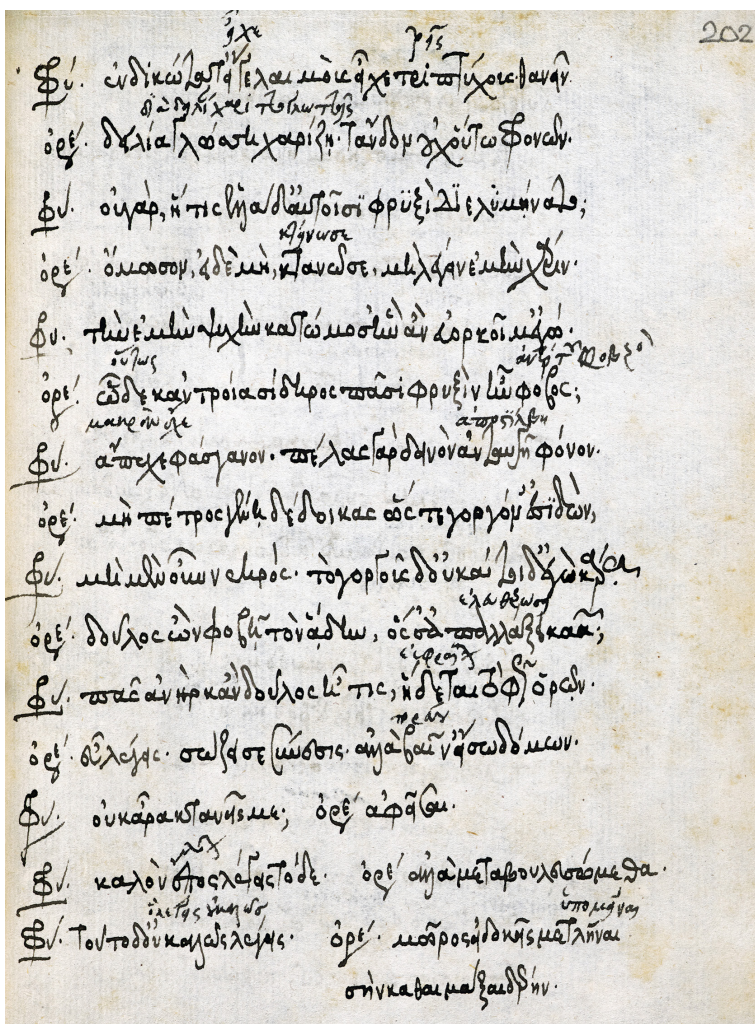 εἶχε τρεῖς
Φρύ. ἐνδικώτατ' εἴ γε λαιμοὺς εἶχε τριπτύχους θανεῖν.
ὀρέ. δειλίᾳ γλώσσῃ χαρίζῃ· τἄνδον οὐχ οὕτω φρονῶν.
Φρύ. οὐ γάρ, ἥτις ἑλλάδ' αὐτοῖσι φρυξὶ διελυμήνατο;
ὀρέ. ὄμοσον, εἰ δὲ μὴ, κτανῶ σε, μὴ λέγειν ἐμὴν χάριν.
Φρύ. τὴν ἐμὴν ψυχὴν κατώμοσ' ἣν ἂν εὐορκοῖμ' ἐγώ.
οὕτως
ὀρέ. ὧδε κἀν τροία σίδηρος πᾶσι φρυξὶν ἦν φόβος;
Φρύ. ἄπεχε φάσγανον. πέλας γὰρ δεινὸν ἀνταυγεῖ φόνον.
ὀρέ. μὴ πέτρος γένῃ δέδοικας ὥστε γοργόν' εἰσιδών,
Φρύ. μὴ μὲν οὖν νεκρός. τὸ γοργοῦς δ' οὐ κάτοιδ' ἐγὼ κάρα
ὀρέ. δοῦλος ὢν φοβῇ τὸν ᾅδην, ὅς σ' ἀπαλλάξει κακῶν;
Φρύ. πᾶς ἀνὴρ κἂν δοῦλος ᾖ τις, ἥδεται τὸ φῶς ὁρῶν.
ὀρέ. εὖ λέγεις. σώζει σε σύνεσις. ἀλλὰ βαῖν' εἴσω δόμων.
Φρύ. οὐκ ἄρα κτανεῖς με; ὀρέ. ἀφεῖσαι.
Φρύ. καλὸν ἔπος λέγεις τόδε. ὀρέ. ἀλλὰ μεταβουλευσόμεθα.
Φρύ. τοῦτο δ' οὐ καλῶς λέγεις. ὀρέ. μῶρος εἰ δοκεῖς με τλῆναι
σὴν καθαιμάξαι δέρην.
202